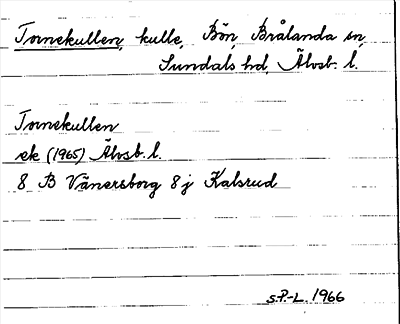 Tornekullen, kulle, Bön, Brålanda sn,
Sundals hd, Älvsb. l.
Tornekullen
ek (1965) Älvsb. l.
8 B Vänersborg 8 j Kalsrud
S.P.-L. 1966